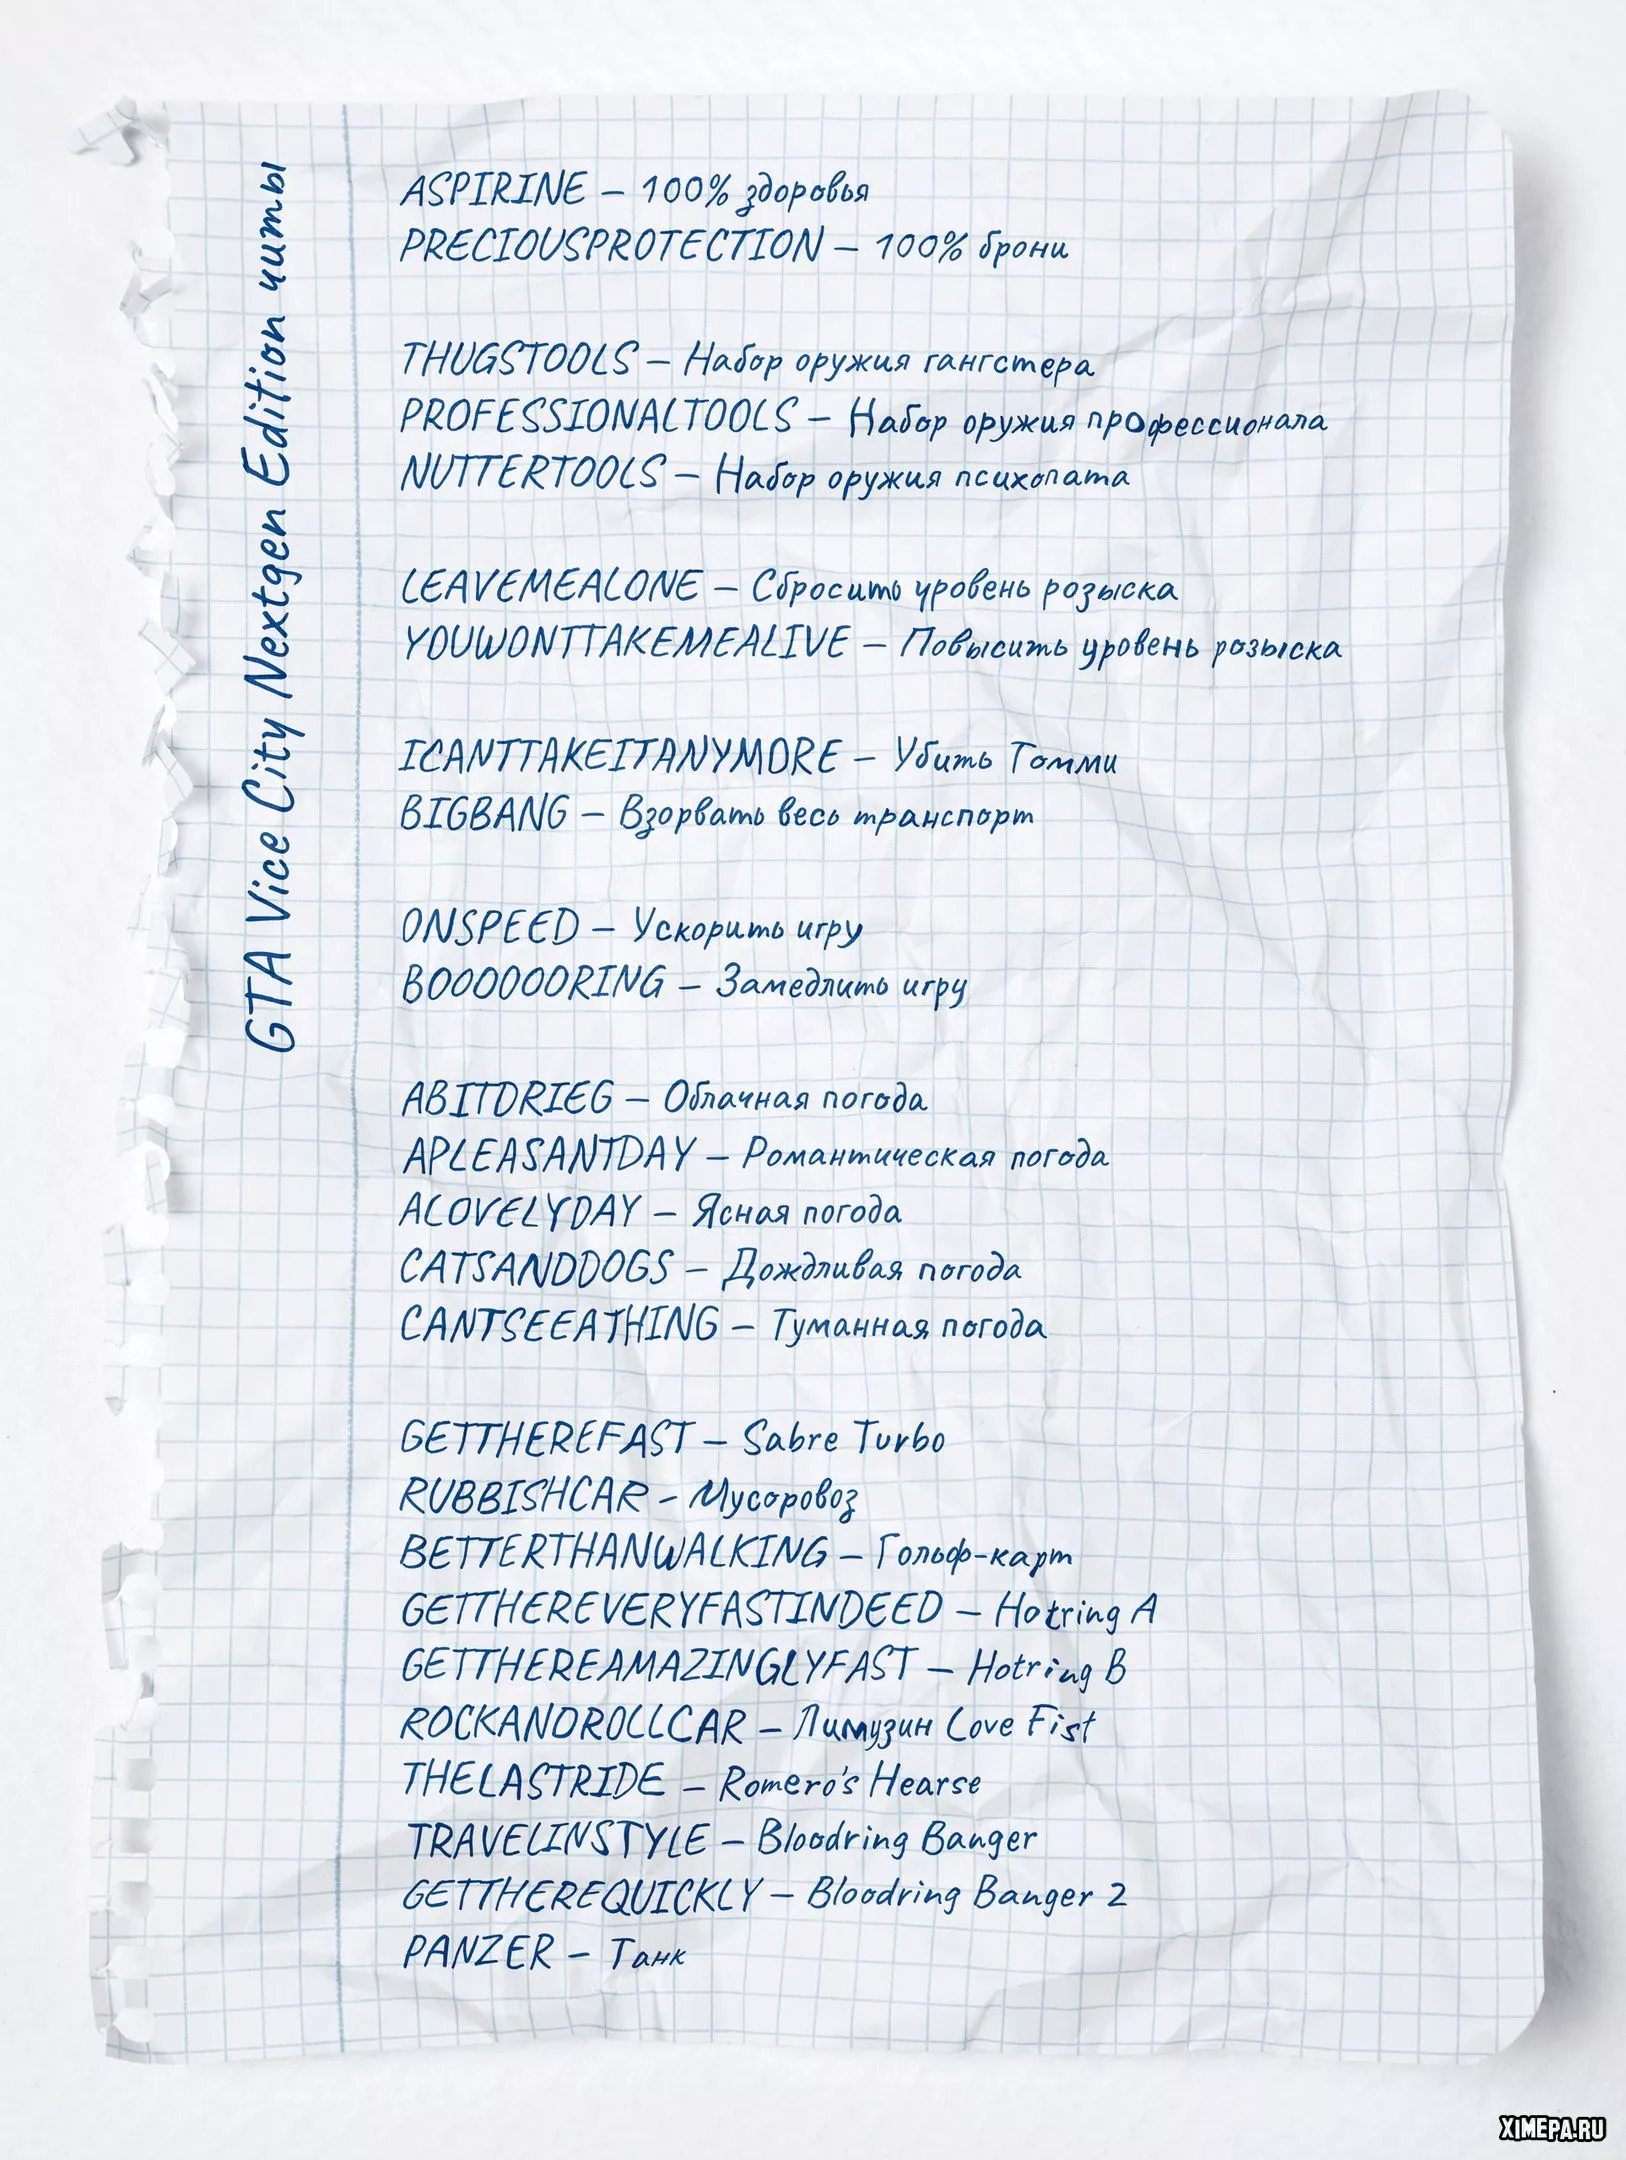 GTA Vice City Nextgen Edition читы
ASPIRINE – 100% здоровья
PRECIOUSPROTECTION – 100% брони
THUGSTOOLS – Набор оружия гангстера
PROFESSIONALTOOLS – Набор оружия профессионала
NUTTERTOOLS – Набор оружия психопата
LEAVEMEALONE – Сбросить уровень розыска
YOUWONTTAKEMEALIVE – Повысить уровень розыска
ICANTTAKEITANYMORE – Убить Томми
BIGBANG – Взорвать весь транспорт
ONSPEED – Ускорить игру
BOOOOOORING – Замедлить игру
ABITDRIEG – Облачная погода
APLEASANTDAY – Романтическая погода
ALOVELYDAY – Ясная погода
CATSANDDOGS – Дождливая погода
CANTSEEATHING – Туманная погода
GETTHEREFAST – Sabre Turbo
RUBBISHCAR – Мусоровоз
BETTERTHANWALKING – Гольф-карт
GETTHEREVERYFASTINDEED – Hotring A
GETTHEREAMAZINGLYFAST – Hotring B
ROCKANDROLLCAR – Лимузин Love Fist
THELASTRIDE – Romero's Hearse
TRAVELINSTYLE – Bloodring Banger
GETTHEREQUICKLY – Bloodring Banger 2
PANZER – Танк
XIMEPA.RU